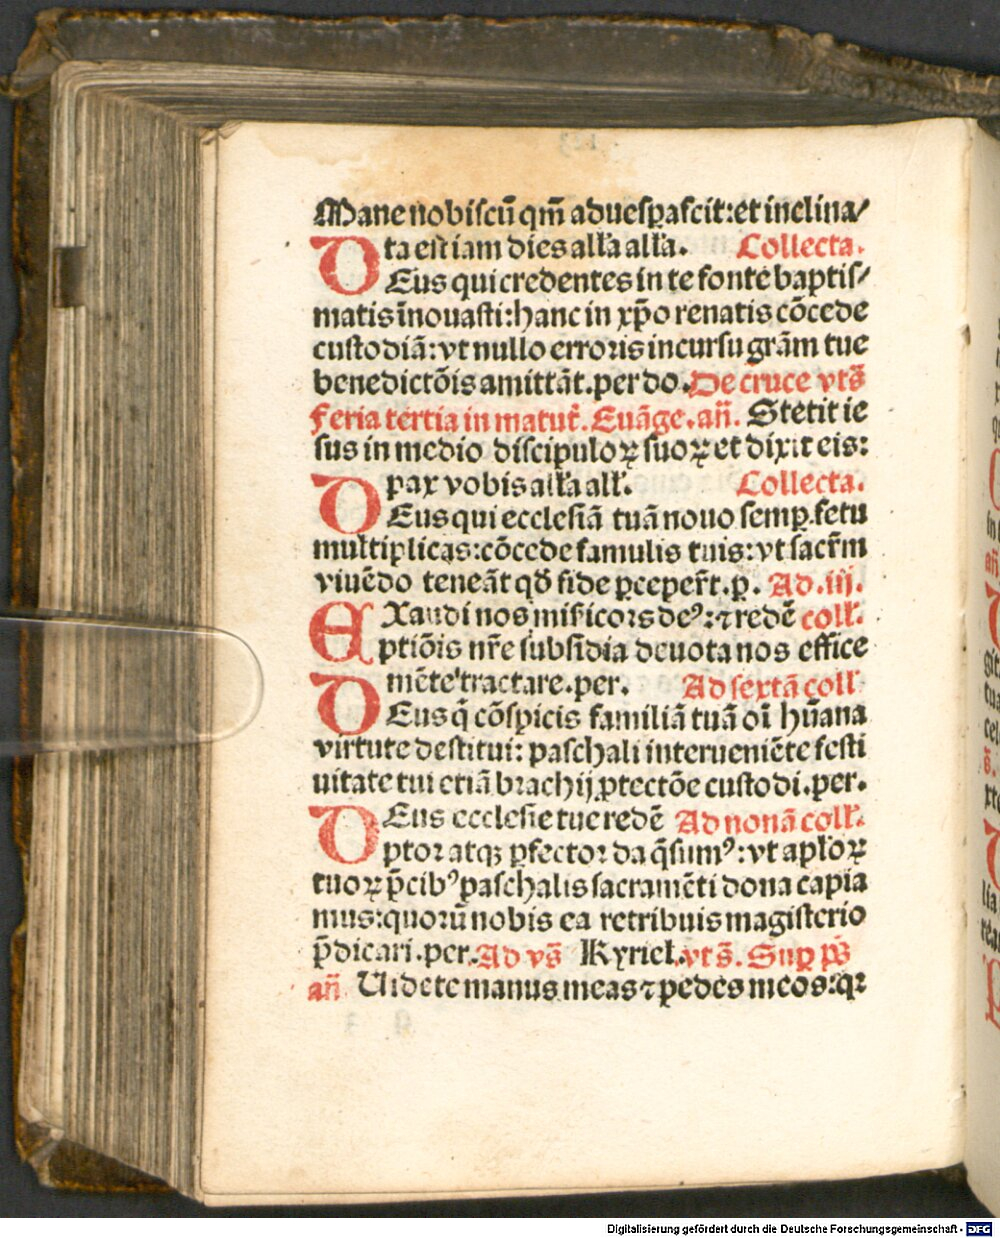 Mane nobiscū qm̄ aduesꝑascit: et inclina/
ta est iam dies alľa alľa. Collecta.
DEus qui credentes in te fonte baptis/
matis īnouasti: hanc in xp̄o renatis cōcede
custodiā: vt nullo erroris incursu grām tue
benedictōis amittāt. per do. De cruce vts̄
Feria tertia in matut̄. Euāge. an̄. Stetit ie
sus in medio discipuloꝝ suoꝝ et dixit eis:
pax vobis alľa alľ. Collecta.
DEus qui ecclesiā tuā nouo semꝑ fetu
multiplicas: cōcede famulis tuis: vt sacr̄m
viuēdo teneāt qđ fide ꝑceper̄t. p. Ad .iij.
EXaudi nos misicors deꝰ: ⁊ redē colľ.
ptiōis nr̄e subsidia deuota nos effice
mēte tractare. per. Ad sextā colľ
DEus q̄ cōspicis familiā tuā oī hūana
virtute destitui: paschali interueniēte festi
uitate tui etiā brachij ꝓtectōe custodi. per.
DEus ecclesie tue redē Ad nonā colľ.
ptor atqꝫ ꝑfector da q̄sumꝰ: vt apľoꝝ
tuoꝝ p̄cibꝰ paschalis sacramēti dona capia
mus: quorū nobis ea retribuis magisterio
p̄dicari. per. Ad vs̄ Kyriel. vts̄. Suꝑ ps̄
an̄ Uidete manus meas ⁊ pedes meos: qꝛ
Digitalisierung gefördert durch die Deutsche Forschungsgemeinschaft - DFG